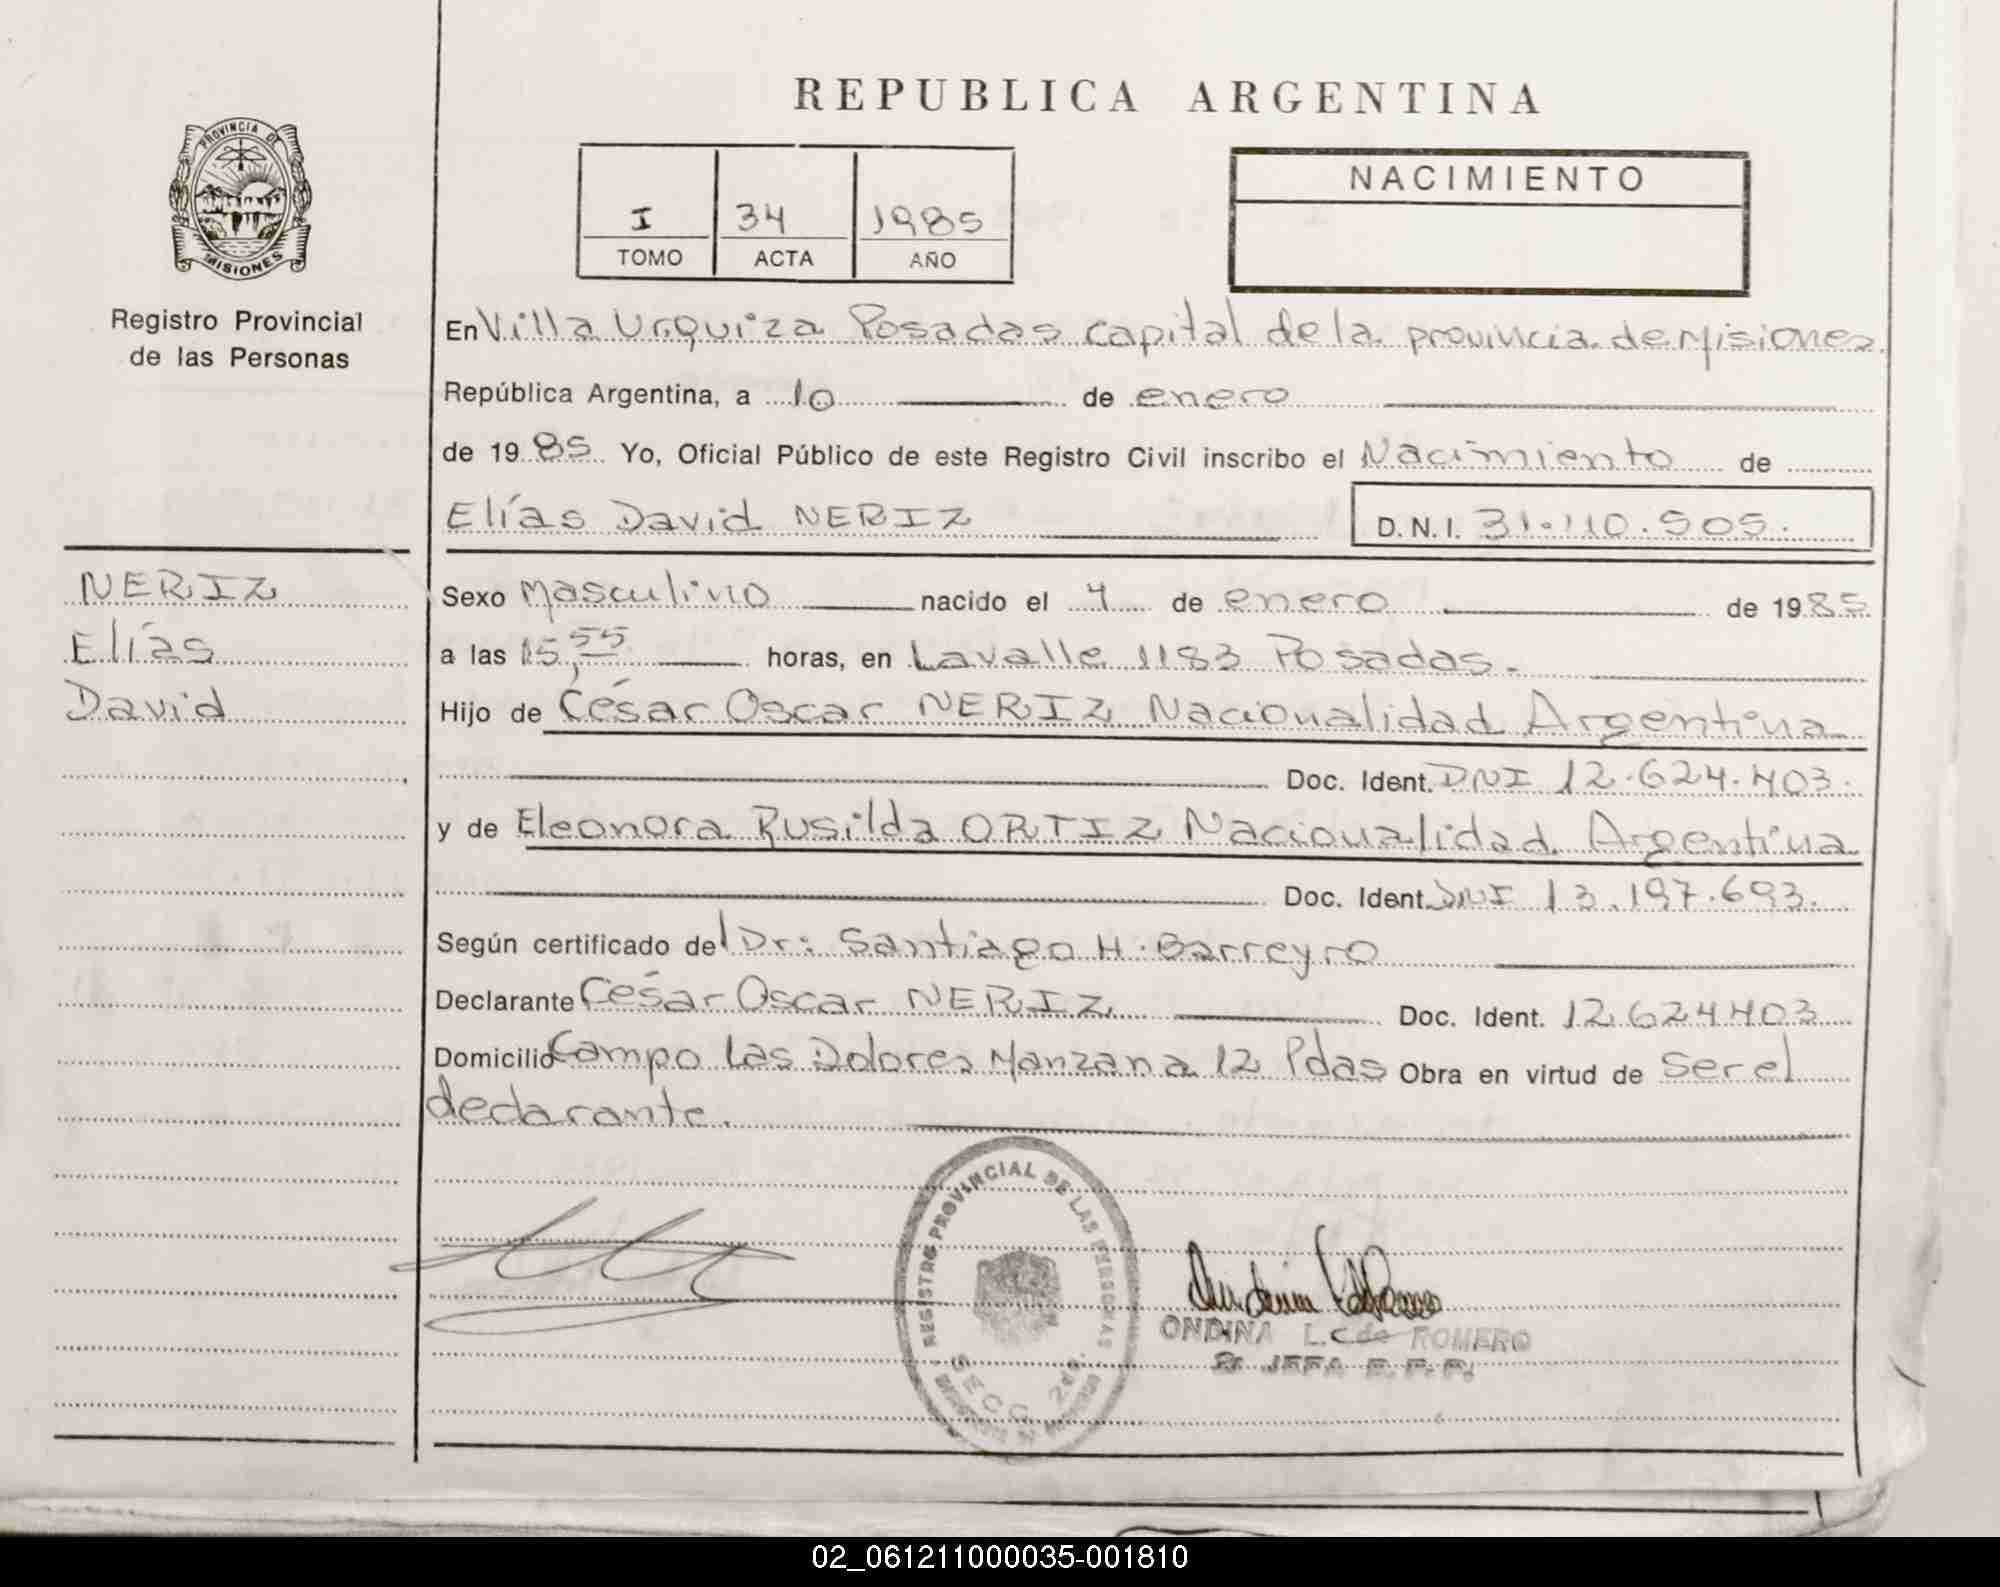 REPUBLICA ARGENTINA
PROVINCIA DE MISIONES
Registro Provincial
de las Personas
I 34 1985
TOMO ACTA AÑO
NACIMIENTO
En Villa Urquiza Posadas capital de la provincia de Misiones.
República Argentina, a 10 de enero
de 1985 Yo, Oficial Público de este Registro Civil inscribo el Nacimiento de
Elías David NERIZ D.N.I. 31.110.505.
NERIZ
Elías
David
Sexo Masculino nacido el 4 de enero de 1985
a las 15,55 horas, en Lavalle 1183 Posadas.
Hijo de César Oscar NERIZ Nacionalidad Argentina
Doc. Ident. DNI 12.624.403.
y de Eleonora Rusilda ORTIZ Nacionalidad Argentina
Doc. Ident. DNI 13.197.693.
Según certificado del Dr: Santiago H. Barreyro
Declarante César Oscar NERIZ Doc. Ident. 12.624.403
Domicilio Campo Las Dolores Manzana 12 Pdas Obra en virtud de ser el
declarante.
REGISTRO PROVINCIAL DE LAS PERSONAS
SECC. 2da.
ONDINA L. C de ROMERO
JEFA
02_061211000035-001810